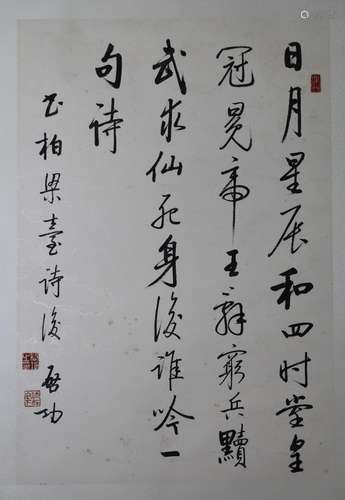 日月星辰和四时堂皇
冠冕帝王辞穷兵黩
武求仙死身后谁吟一
句诗
书柏梁台诗后 启功